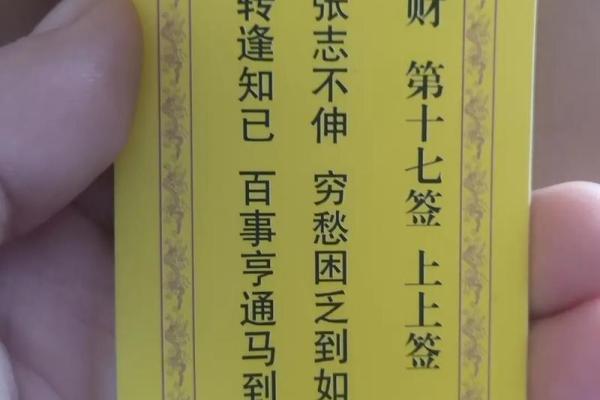 财 第十七签 上上签
张志不伸 穷愁困乏到如
转逢知己 百事亨通马到